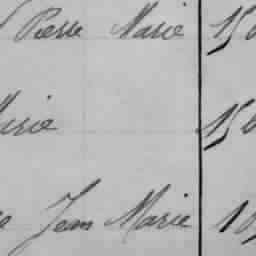 Pierre Marie 15
Marie 15
Jean Marie 10